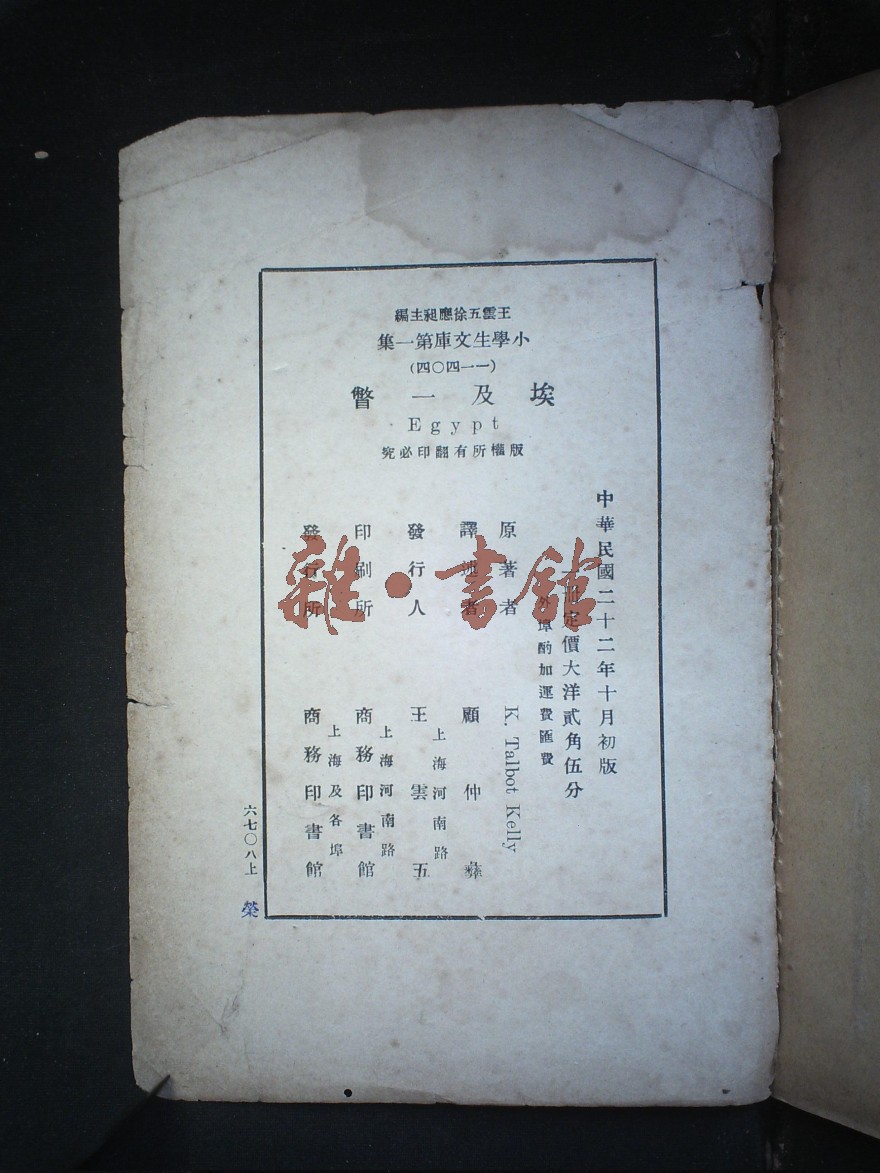 王雲五徐應昶主編
小學生文庫第一集
(一一四〇四)
埃及一瞥
Egypt
版權所有翻印必究
中華民國二十二年十月初版
冊定價大洋貳角伍分
外埠酌加運費匯費
原著者 K. Talbot Kelly
譯述者 顧仲彝
發行人 王雲五
上海河南路
印刷所 商務印書館
上海河南路
發行所 商務印書館
上海及各埠
六七〇八上
榮
雜·書館